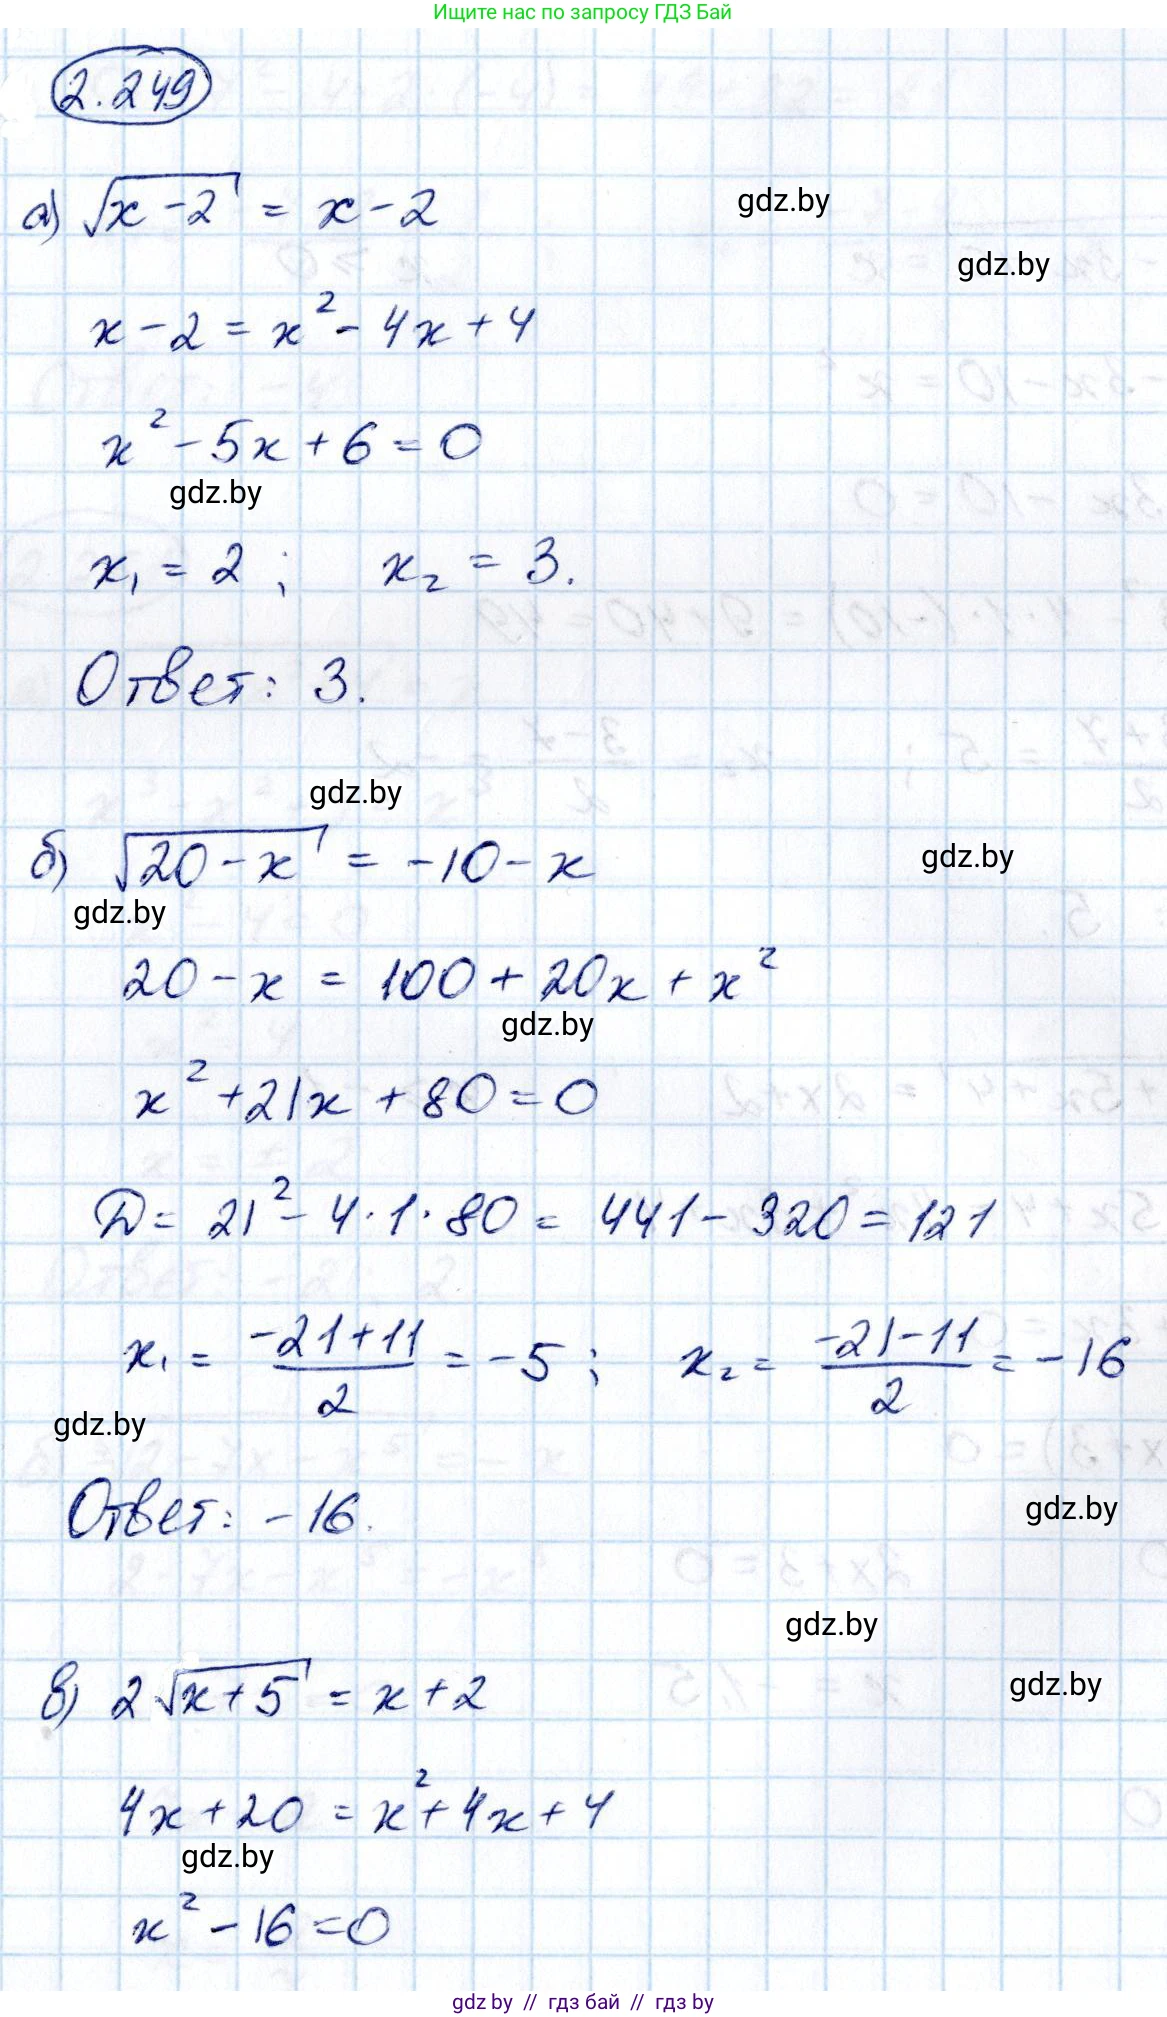 Ищите нас по запросу ГДЗ Бай
2.249
а) √(x-2) = x-2
gdz.by
gdz.by
x-2 = x²-4x+4
x²-5x+6=0
gdz.by
x₁ = 2; x₂ = 3.
Ответ: 3.
gdz.by
б) √(20-x) = -10-x
gdz.by
gdz.by
20-x = 100+20x+x²
gdz.by
x²+21x+80=0
D= 21²-4·1·80= 441-320=121
x₁ = (-21+11)/2 = -5; x₂ = (-21-11)/2 = -16
gdz.by
Ответ: -16.
gdz.by
gdz.by
в) 2√(x+5) = x+2
gdz.by
4x+20 = x²+4x+4
gdz.by
x²-16=0
gdz by // гдз бай // gdz by